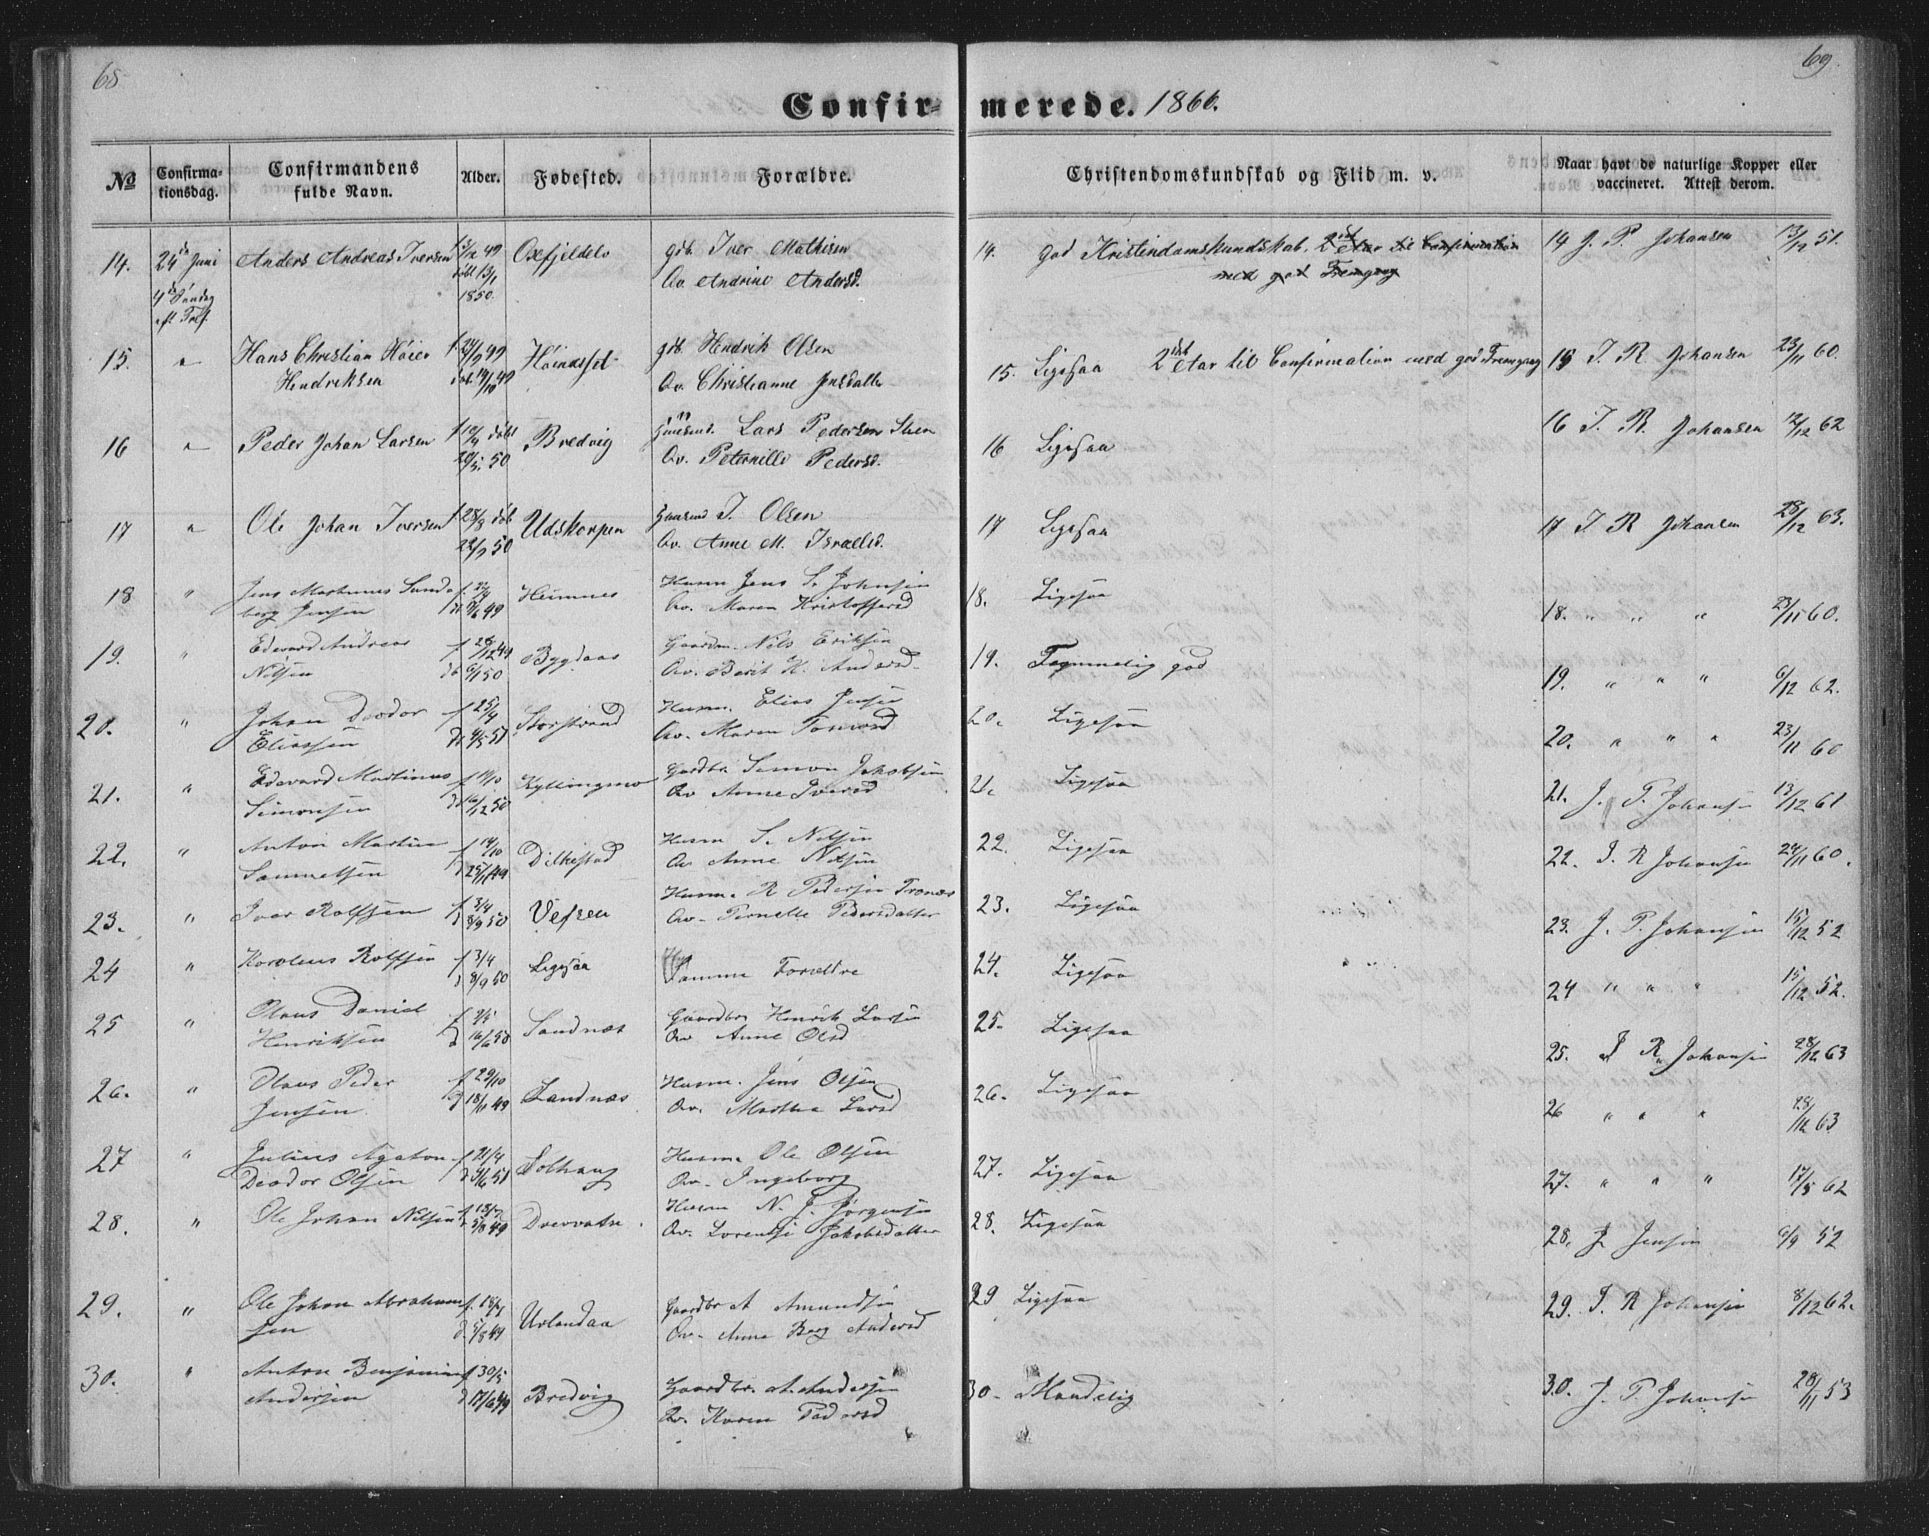 68
69.
Confir- merede. 1866.
No
Confirma-
tionsdag.
Confirmandens
fulde Navn.
Alder.
Fødested.
Forældre.
Christendomskundskab og Flid m. v.
Naar havt de naturlige Kopper eller
vaccineret. Attest derom.
14. 24de Juni Anders Andreas Iversen 49 Oxefjeldel gdb. Iver Mathisen
4de Søndag døbt 13/1 1850. Qv. Andrine Andersd.
eft. Tref.
14. god Kristendomskundskab. 2det etar til Confirmation
med god Fremgang
14 J. P. Johansen 13/12 51.
15. " Hans Christian Høier 49 gdb. Hendrik Olsen
Hendriksen døb. 14/10 49 Qv. Christianne Jensdatter
15. Ligesaa 2det etar til Confirmation med god Fremgang
15 I. R. Johansen 23/11 60.
16 " Peder Johan Larsen døbt Bredvig Huusmd. Lars Pedersen Steen
20/5. 50 Qv. Peternille Pedersd.
16 Ligesaa
16 I. R. Johansen 12/12 62
17 " Ole Johan Iversen f. 28/3 døb Udskorpen Gaarmd I. Olsen
50 Qv. Anne M. Israelsd.
17 Ligesaa
17 I R Johansen 28/12 63.
18 " Jens Martinus Sund- Hemnes Husm Jens S. Johnsen
berg Jensen 49 Qv. Maren Kristoffersd
18. Ligesaa
18. " " " 23/11 60.
19. " Edevard Andreas f 28/12 49 Bygdaas Gaardm. Nils Eriksen
Nilsen db 6/1 50 Qv. Berit K. Andersd.
19. Temmelig god
19. " " " 6/12 62.
20. " Johan Deodor f 25/4 Storstrand Husm. Elias Jensen
Eliassen 51 Qv. Maren Tomasd
20. Ligesaa
20. " " " 23/11 60
21. " Edevard Martinus Kyllingmo Gaardbr Simon Jakobsen
Simonsen 16/12 50 Qv Anne Iversd
21. Ligesaa
21. J. P. Johansen 13/12 61
22. " Anton Martin f 14/10 Dilkestad Husm S. Nilsen
Samuelsen d 25/11 49 Qv Anne Nilsen
22. Ligesaa
22. I. R Johansen 24/11 60.
23. " Iver Rolfsen f 3/4 Vefsen Husm. R Pedersen Tronæs
d 8/9 50 Qv. Pernelle Pedersdatter
23. Ligesaa
23. J. P. Johansen 15/12 52
24 " Karolius Rolfsen f 3/4 Ligesaa Samme Forældre
d 8/9 50
24. Ligesaa
24 " " " 15/12 52.
25 " Olaus Daniel f 2/5 Sandnæs Gaardbr Henrik Larsen
Henriksen d 16/6 50 Qv Anne Olsd
25. Ligesaa
25. I R. Johansen 28/12 63
26. " Olaus Peder f 29/10 Sandnæs Husm. Jens Olsen
Jensen d 18/11 49 Qv. Martha Larsd
26. Ligesaa
26 " " " 28/12 63
27 " Julius Agaton f 21/4 Solhaug Husm. Ole Olsen
Deodor Olsen 51 Qv. Ingeborg
27. Ligesaa
27. " " " 17/5 62
28. " Ole Johan Nilsen 49 Drevvatn. Husm N. J. Jørgensen
Qv. Lorentse Jakobsdatter
28. Ligesaa
28. J Jensen 6/9 52
29. " Ole Johan Abraham- f. 18/7 Urlandaa Gaardbr A Amundsen
sen d 5/8 49 Qv. Anne Berg Andersd
29 Ligesaa
29. I. R Johansen 8/12 62.
30. " Anton Benjamin f 30/5 Bredvig Gaardbr. A. Andersen
Andersen d 17/6 49 Qv. Karen Pedersd
30. Maadelig
30. J. P. Johansen 28/11 53